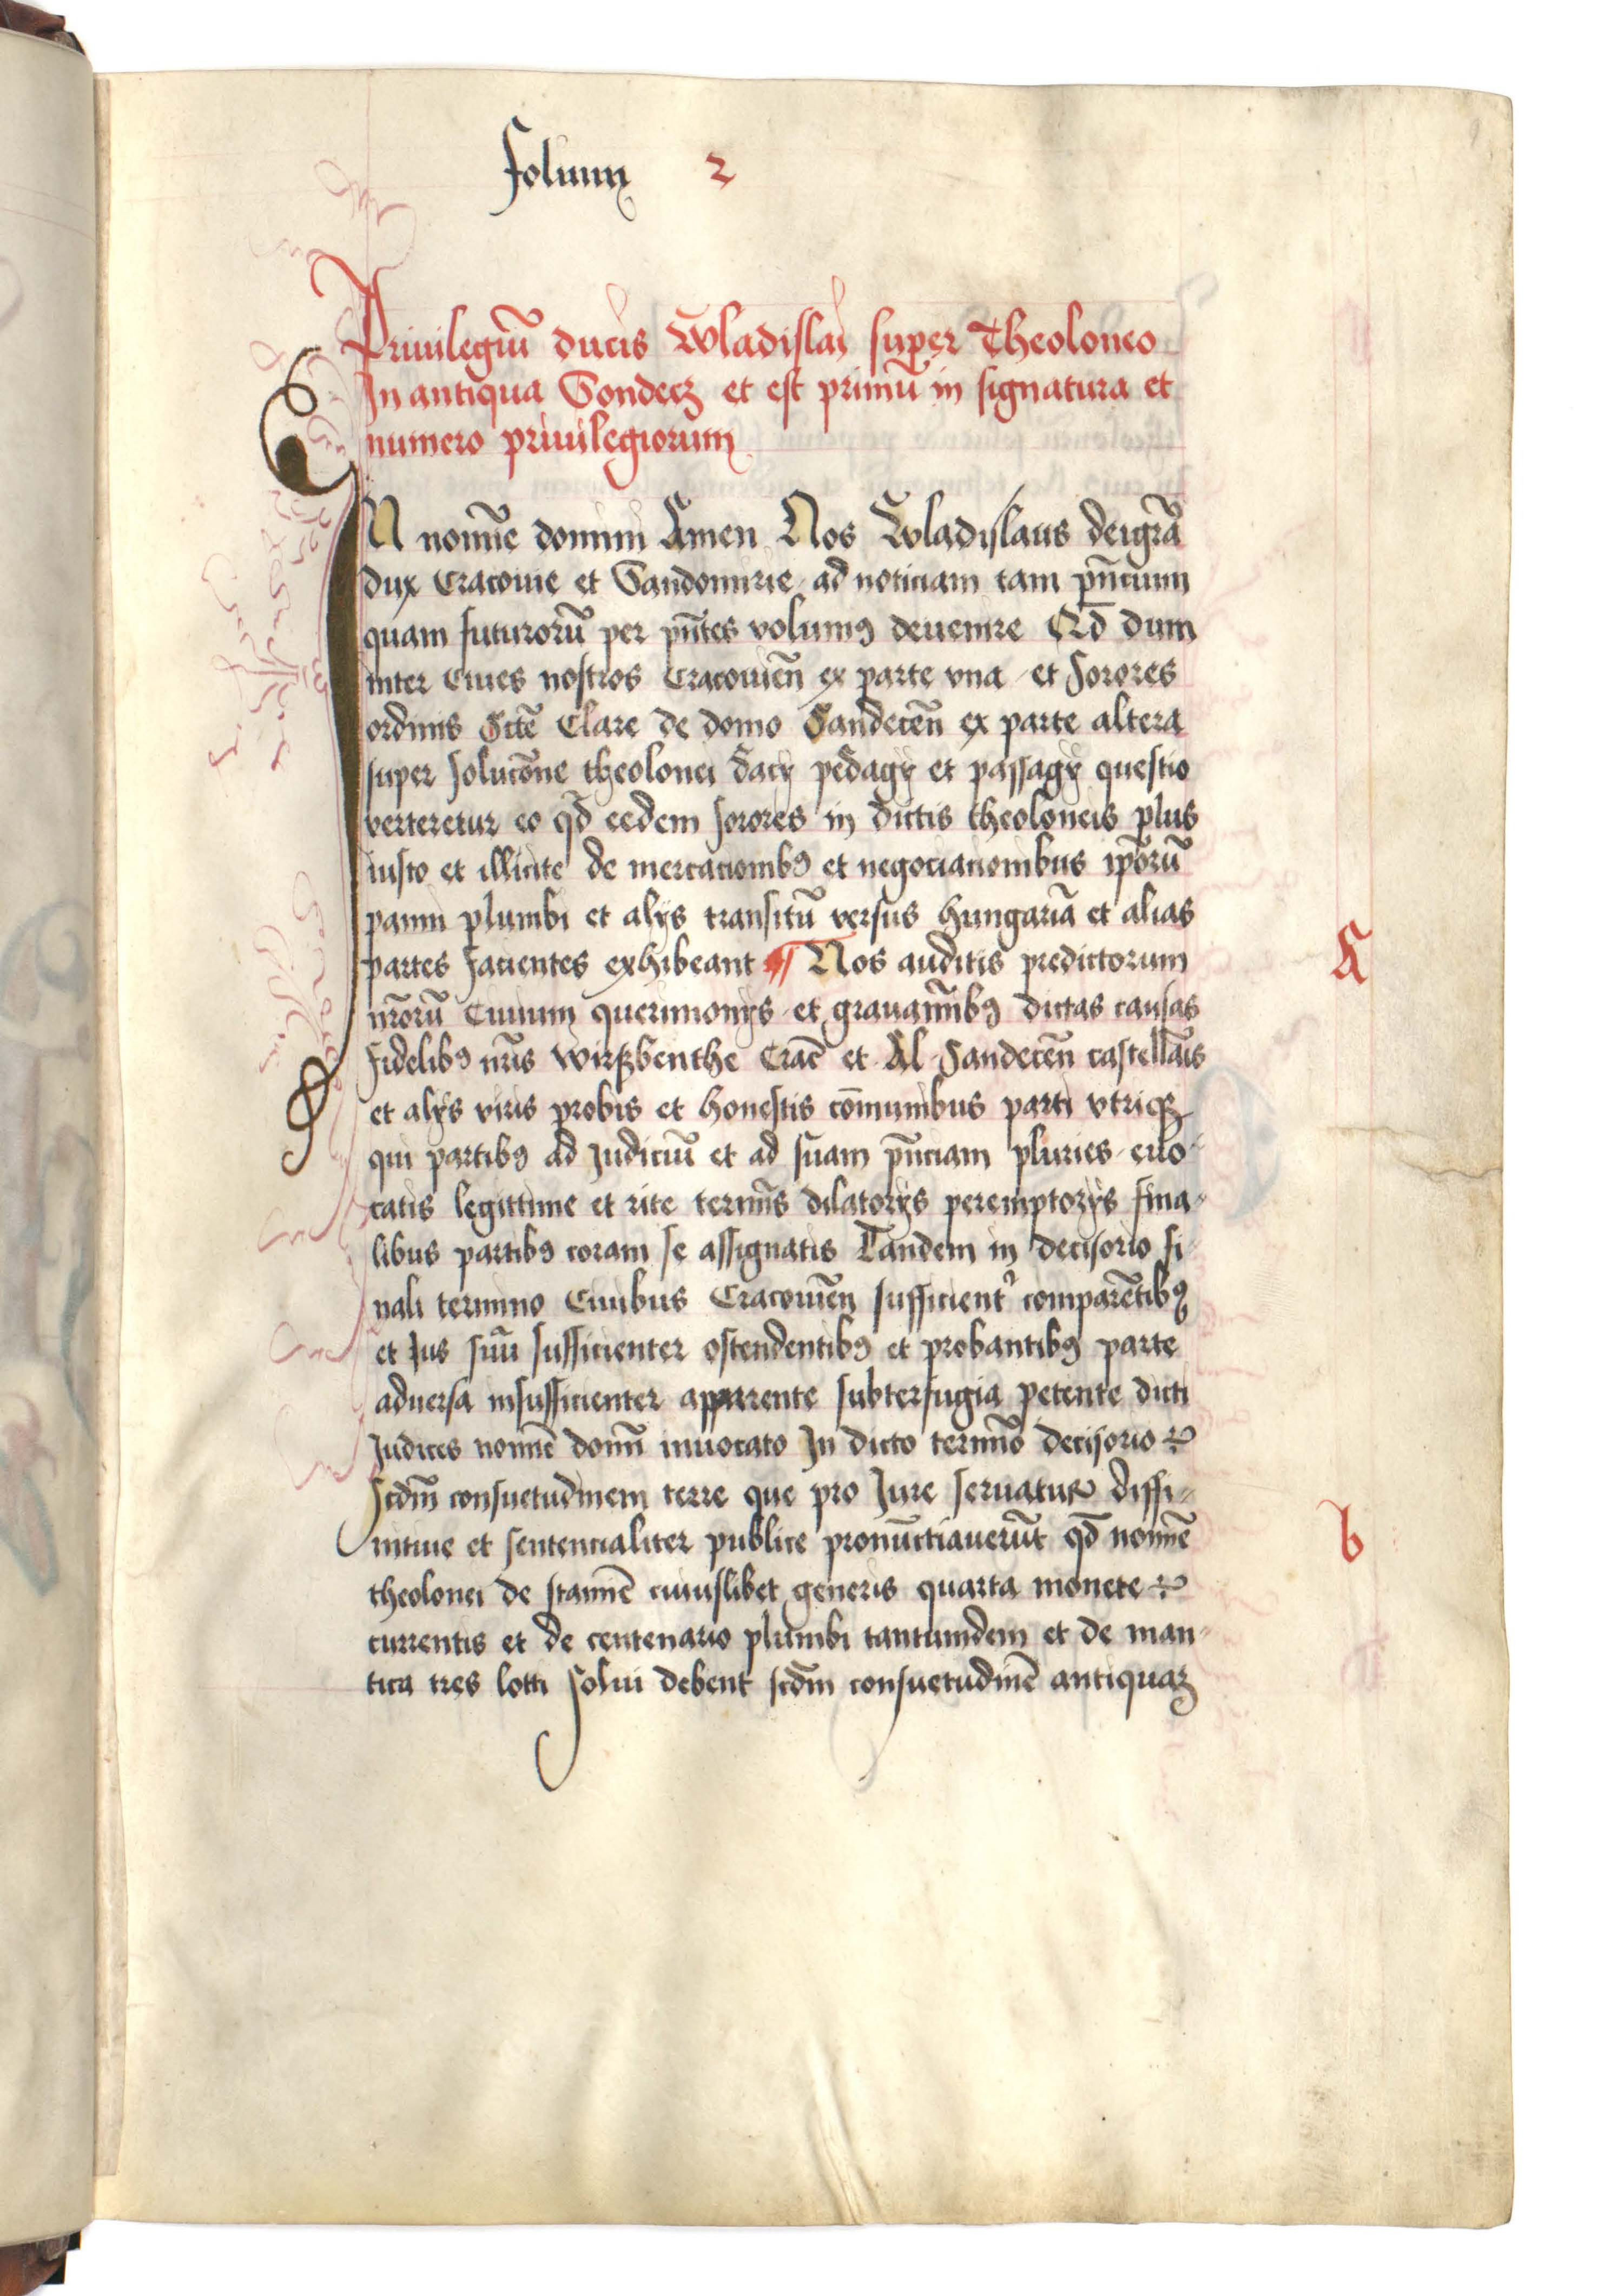 folium 2
Priuilegiū ducis Wladislai super Theoloneo
In antiqua Sondecz et est primū in signatura et
numero priuilegiorum
IN nomīe domini Amen Nos Wladislaus dei grā
dux Cracouie et Sandomirie ad noticiam tam pn̄cium
quam futurorū per pn̄tes volumꝰ deuenire Qd̄ dum
inter Ciues nostros Cracouien̄ ex parte vna et Sorores
ordinis Sctē Clare de domo Sandecen̄ ex parte altera
super solucōne theolonei dacÿ pedagÿ et passagÿ questio
verteretur eo qd̄ eedem sorores in dictis theoloneis plus
iusto et illicite de mercacionibꝰ et negociacionibus ip̄orū
panni plumbi et alÿs transitū versus Hungariā et alias
partes facientes exhibeant ¶ Nos auditis predictorum
nr̄orū Ciuium querimonÿs et grauaminibꝰ dictas causas
fidelibꝰ nr̄is Wirzbenthe Crac̄ et Al Sandecen̄ castellānis
et alÿs viris probis et honestis cōmunibus parti vtriqꝫ
qui partibꝰ ad Judiciū et ad suam pn̄ciam pluries euo-
catis legittime et rite termīs dilatorÿs peremptorÿs fina-
libus partibꝰ coram se assignatis Tandem in decisorio fi
nali termino Ciuibus Cracouien̄ sufficient' comparētibꝰ
et Jus suū sufficienter ostendentibꝰ et probantibꝰ parte
aduersa insufficienter apparente subterfugia petente dicti
Judices nomīe domī inuocato In dicto termīo decisorio
Scdm̄ consuetudinem terre que pro Jure seruatur diffi-
nitiue et sentencialiter publice pronūctiauerūt qd̄ nomīe
theolonei de stamīe cuiuslibet generis quarta monete
currentis et de centenario plumbi tantumdem et de man-
tica tres lotti solui debent scdm̄ consuetudinē antiquaꝫ
A
b